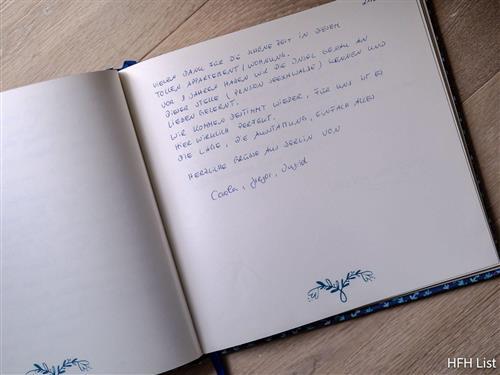 VIELEN DANK FÜR DIE SCHÖNE ZEIT IN DIESEM
TOLLEN APPARTEMENT / WOHNUNG.
VOR 8 JAHREN HABEN WIR DIE INSEL GENAU AN
DIESER STELLE (PENSION SEESCHWALBE) KENNEN UND
LIEBEN GELERNT.
WIR KOMMEN BESTIMMT WIEDER, FÜR UNS IST ES
HIER WIRKLICH PERFEKT.
DIE LAGE, DIE AUSSTATTUNG, EINFACH ALLES
HERZLICHE GRÜßE AUS BERLIN VON
Carla,
HFH List